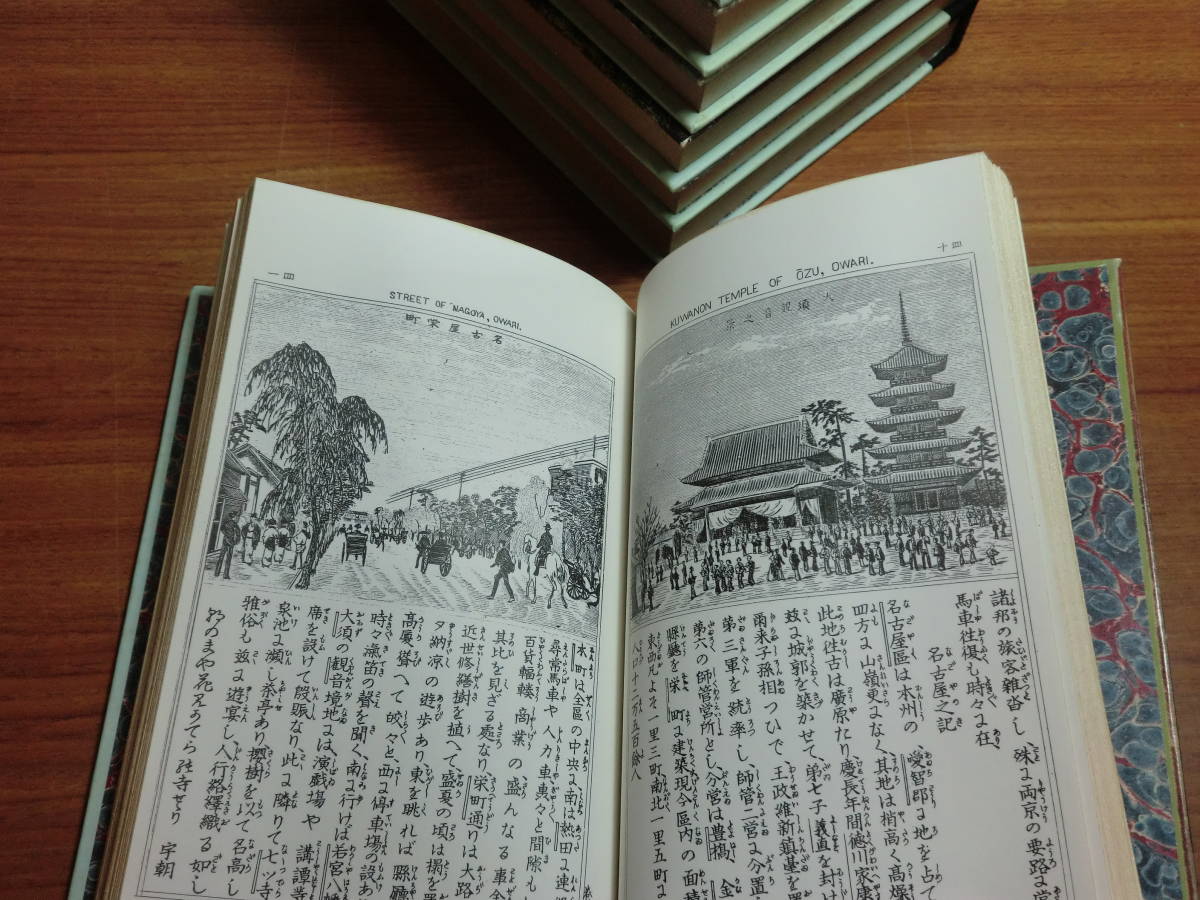 四十
KUWANON TEMPLE OF ŌZU, OWARI.
大須観音之景
諸邦の旅客雑沓し、殊に両京の要路に當
馬車往復も時々に在
名古屋之記
名古屋區は本州の 愛智郡の地を占て
四方に山嶺更になく、其地は稍高く高燥
此地往古は廣原たり慶長年間徳川家康
茲に城郭を築かせて、第七子義直を封
爾来子孫相つひで、王政維新鎮基を置
第三軍を統率し、師管二営に分置
第六の師管営所とし、分営は豊橋、金
縣廳を栄町に建築現今區内の面積
東西凡よそ一里三町南北一里五町に
人口十二万五百餘人
四一
STREET OF NAGOYA, OWARI.
名古屋栄町
本町は全區の中央に、南は熱田に連
尋常馬車や人力車轟々と間隙も
百貨輻輳商業の盛んなる車
其比を見ざる處なり、栄町通りは大路
近世修繕樹を植へて盛夏の頃は榻を
夕納凉の遊歩あり、東を眺れば縣廳
高厦聳へて皎々と、西に停車場の設あ
時々瀛笛の聲を聞く、南に行けは若宮八幡
大須の観音境地には、演戯場や 講譚
席を設けて殷賑なり、此に隣りて七ツ寺
泉池に瀕し茶亭あり櫻樹を以て名高し
雅俗も茲に遊宴し人行絡繹織る如し
宇朝